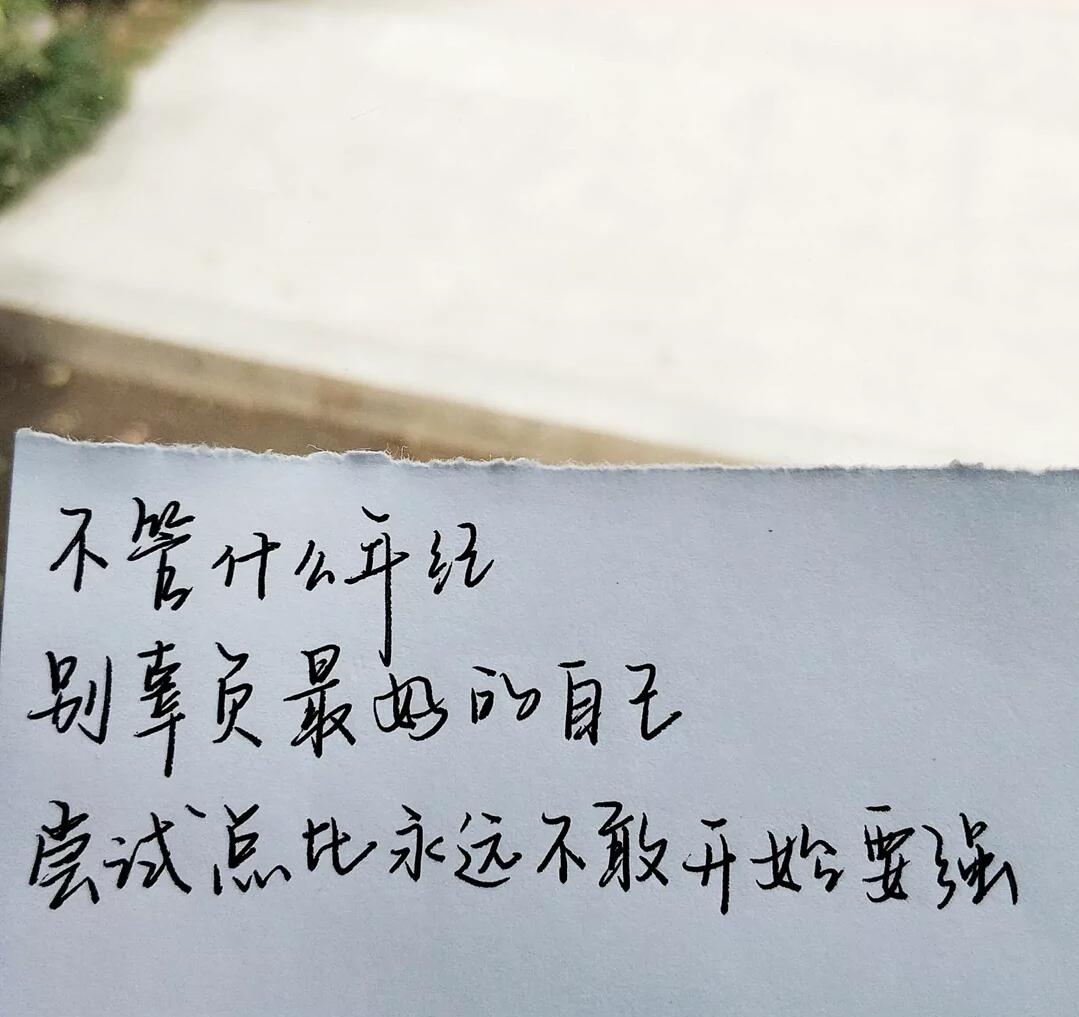 不管什么年经
别辜负最好的自己
尝试点比永远不敢开始要强